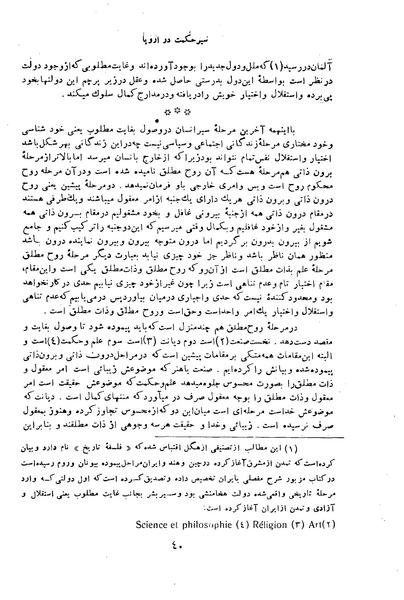 سیر حکمت در اروپا
آلمان در رسید (۱) که ملل و دول جدید را بوجود آورده اند و غایت مطلوبی که از وجود دولت
در نظر است بواسطهٔ این دول بدرستی حاصل شده و عقل در زیر پرچم این دولتها بخود
پی برده و استقلال و اختیار خویش را دریافته و در مدارج کمال سلوک میکند.
* * *
با اینهمه آخرین مرحلهٔ سیر انسان در وصول بغایت مطلوب یعنی خود شناسی
و خود مختاری مرحلهٔ زندگانی اجتماعی و سیاسی نیست چه در این زندگانی بهر شکل باشد
اختیار و استقلال نفس تمام نتواند بود زیرا که از خارج بانسان میرسد اما بالاتر از مرحلهٔ
برون ذاتی هم مرحلهٔ هست که آن روح مطلق نامیده شده است و در آن مرحله روح
محکوم روح است و بس و امری خارجی باو فرمان نمیدهد. دو مرحلهٔ پیشین یعنی روح
درون ذاتی و برون ذاتی هر یک دارای یک جنبه از امر معقول میباشند و یک طرفی هستند
در مقام درون ذاتی همه از جنبهٔ بیرونی غافل و بخود مشغولیم در مقام برون ذاتی همه
مشغول بغیر و از خود غافلیم و بکمال وقتی میرسیم که این دو جنبه را ترکیب کنیم و جامع
شویم از بیرون بدرون برگردیم اما درون متوجه بیرون و بیرون نماینده درون باشد
منظور همان ناظر باشد و ناظر جز خود چیزی نیابد بعبارت دیگر مرحلهٔ روح مطلق
مرحلهٔ علم بذات مطلق است از آن رو که روح مطلق و ذات مطلق یکی است و این مقام،
مقام اختیار تام و عدم تناهی است زیرا چون غیر از خود چیزی نیابیم حدی در کار نخواهد
بود و محدود کنندهٔ نیست که حدی و اجباری در میان بیاورد پس درمی‌یابیم که عدم تناهی
و استقلال و اختیار یک امر واحد است و حق است و روح مطلق و ذات مطلق است.
در مرحلهٔ روح مطلق هم چند منزل است که باید پیموده شود تا وصول بغایت و
مقصد دست دهد. نخست صنعت (۲) است دوم دیانت (۳) است سوم علم و حکمت (۴) است و
البته این مقامات همه متکی بر مقامات پیشین است که در مراحل درون ذاتی و برون ذاتی
پیموده شده و بیانش را کرده‌ایم. صنعت یا هنر که موضوعش زیبائی است امر معقول و
ذات مطلق را بصورت محسوس جلوه میدهد علم و حکمت که موضوعش حقیقت است امر
معقول و ذات مطلق را بوجه معقول صرف در می‌آورد که منتهای کمال است. دیانت که
موضوعش خداست مرحله‌ای است میان این دو که از محسوس تجاوز کرده و هنوز بمعقول
صرف نرسیده است. زیبائی و خدا و حقیقت هر سه وجوهی از ذات مطلقند و بنابراین
(۱) این مطالب از تصنیفی از هگل اقتباس شده که « فلسفهٔ تاریخ » نام دارد و بیان
کرده است که تمدن از مشرق آغاز کرده در چین و هند و ایران مراحل پیموده بیونان و روم رسیده است
در کتاب مزبور شرح مفصلی بایران تخصیص داده و تصدیق کرده است که اول دولتی که وارد
مرحلهٔ تاریخی واقعی شده دولت هخامنشی بود و سیر بشر بجانب غایت مطلوب یعنی استقلال و
آزادی و تمدن از ایران آغاز کرده است.
Science et philosophie (۴) Réligion (۳) Art(۲)
۴۰